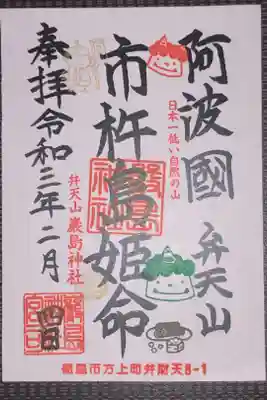 阿波國 弁天山
日本一低い自然の山
市杵嶋姫命
嚴島神社
弁天山 厳島神社
奉拝 令和三年二月 四日
徳島市方上町弁財天8-1